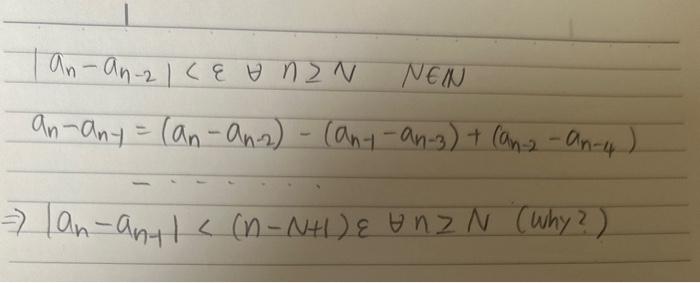 |aₙ - aₙ₋₂| < ε ∀ n ≥ N N∈ℕ
aₙ - aₙ₋₁ = (aₙ - aₙ₋₂) - (aₙ₋₁ - aₙ₋₃) + (aₙ₋₂ - aₙ₋₄)
- - . . . . . .
⇒ |aₙ - aₙ₋₁| < (n-N+1)ε ∀ n ≥ N (why?)